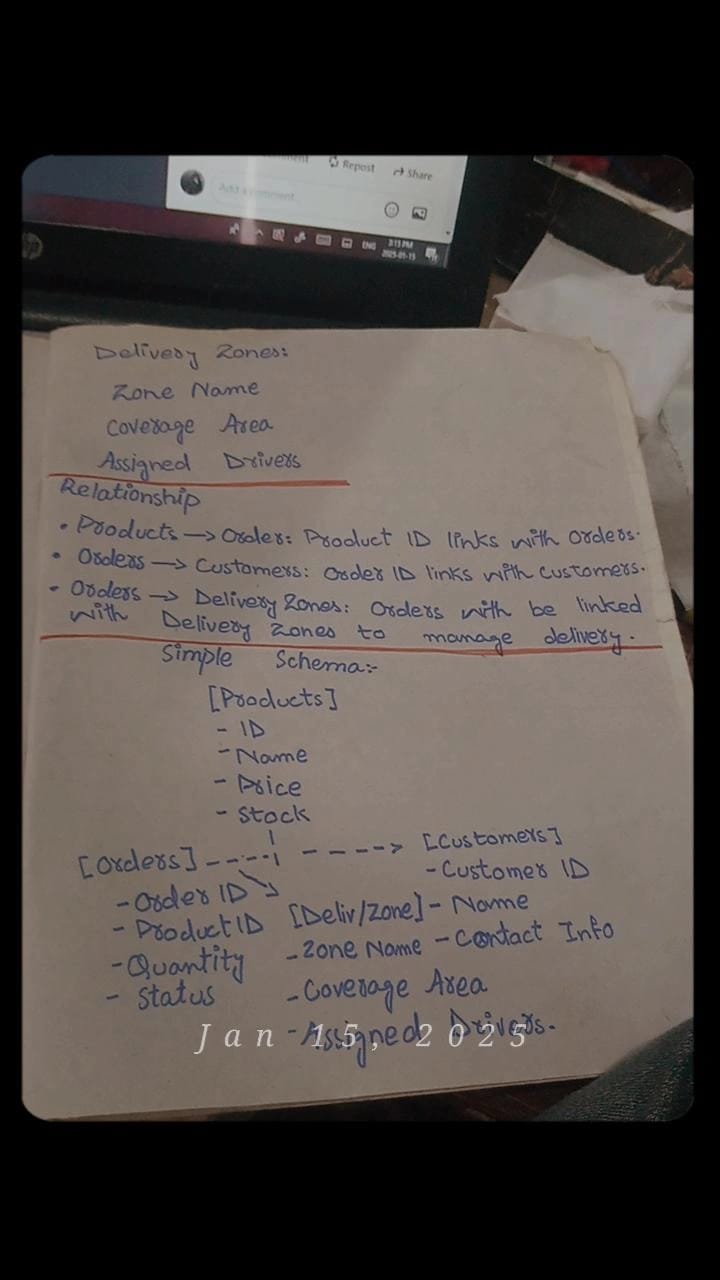 Repost
Share
Add a comment...
ENG
3:15 PM
2025-01-15
hp
Delivery Zones:
Zone Name
Coverage Area
Assigned Drivers
Relationship
• Products → Order: Product ID links with Orders.
• Orders → Customers: Order ID links with Customers.
• Orders → Delivery Zones: Orders with be linked
with Delivery Zones to manage delivery.
Simple Schema:-
[Products]
- ID
- Name
- Price
- Stock
[Orders] ----> [Customers]
- Order ID - Customer ID
- Product ID [Deliv/Zone] - Name
- Quantity - Zone Name - Contact Info
- Status - Coverage Area
- Assigned Drivers.
Jan 15, 2025